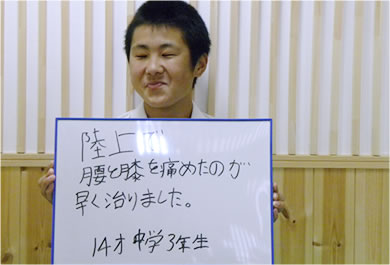 陸上で
腰と膝を痛めたのが
早く治りました。
14才 中学3年生